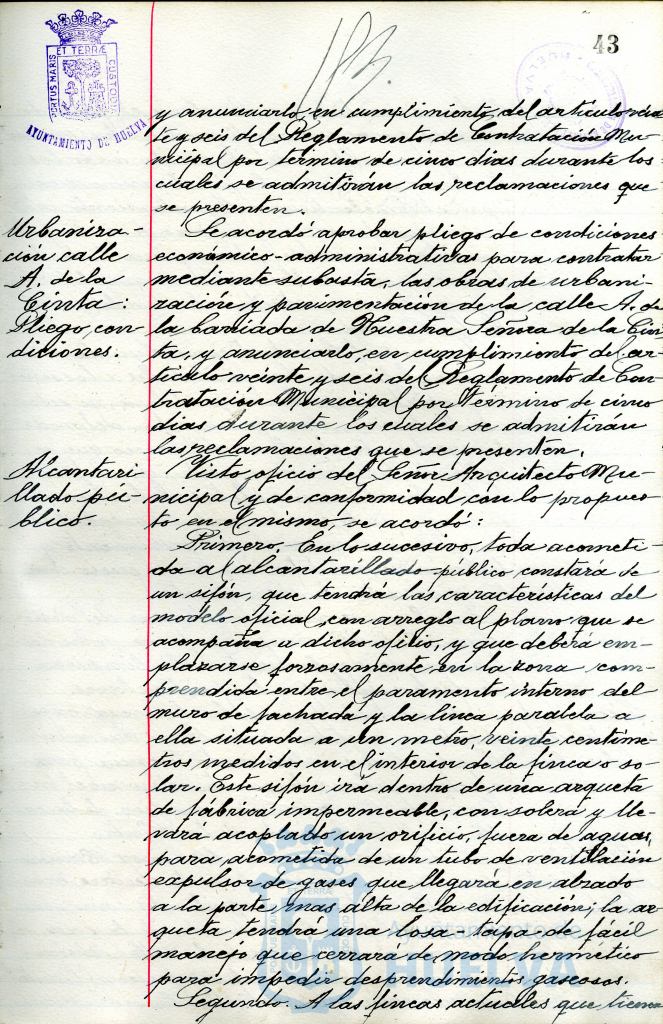 43
PORTUS MARIS ET TERRÆ CUSTODIA
AYUNTAMIENTO DE HUELVA
y anunciarlo en cumplimiento del artículo vein-
te y seis del Reglamento de Contratación Mu-
nicipal por término de cinco días durante los
cuales se admitirán las reclamaciones que
se presenten.
Urbaniza-
ción calle
A. de la
Cinta:
Pliego con-
diciones.
Se acordó aprobar pliego de condiciones
económico-administrativas para contratar
mediante subasta, las obras de urbani-
zación y pavimentación de la calle A. de
la barriada de Nuestra Señora de la Cin-
ta, y anunciarlo, en cumplimiento del ar-
tículo veinte y seis del Reglamento de Con-
tratación Municipal por término de cinco
días durante los cuales se admitirán
las reclamaciones que se presenten.
Alcantari-
llado pú-
blico.
Visto oficio del Señor Arquitecto Mu-
nicipal y de conformidad con lo propues-
to en el mismo, se acordó:
Primero. En lo sucesivo, toda acometi-
da al alcantarillado público constará de
un sifón, que tendrá las características del
modelo oficial, con arreglo al plano que se
acompaña a dicho oficio, y que deberá em-
plazarse forzosamente en la zona com-
prendida entre el paramento interno del
muro de fachada y la linea paralela a
ella situada a un metro, veinte centíme-
tros medidos en el interior de la finca o so-
lar. Este sifón irá dentro de una arqueta
de fábrica impermeable, con solera y lle-
vará acoplado un orificio, fuera de aguas,
para acometida de un tubo de ventilación
expulsor de gases que llegará en alzado
a la parte mas alta de la edificación; la ar-
queta tendrá una losa-tapa de fácil
manejo que cerrará de modo hermético
para impedir desprendimientos gaseosos.
Segundo. A las fincas actuales que tienen
HUELVA